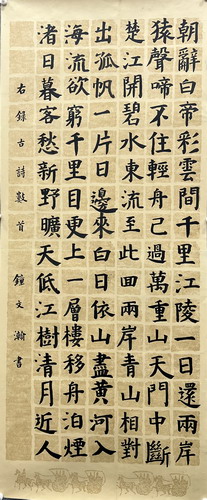 朝辭白帝彩雲間千里江陵一日還兩岸
猿聲啼不住輕舟已過萬重山天門中斷
楚江開碧水東流至此回兩岸青山相對
出孤帆一片日邊來白日依山盡黄河入
海流欲窮千里目更上一層樓移舟泊煙
渚日暮客愁新野曠天低江樹清月近人
右錄古詩數首 鐘文瀚書